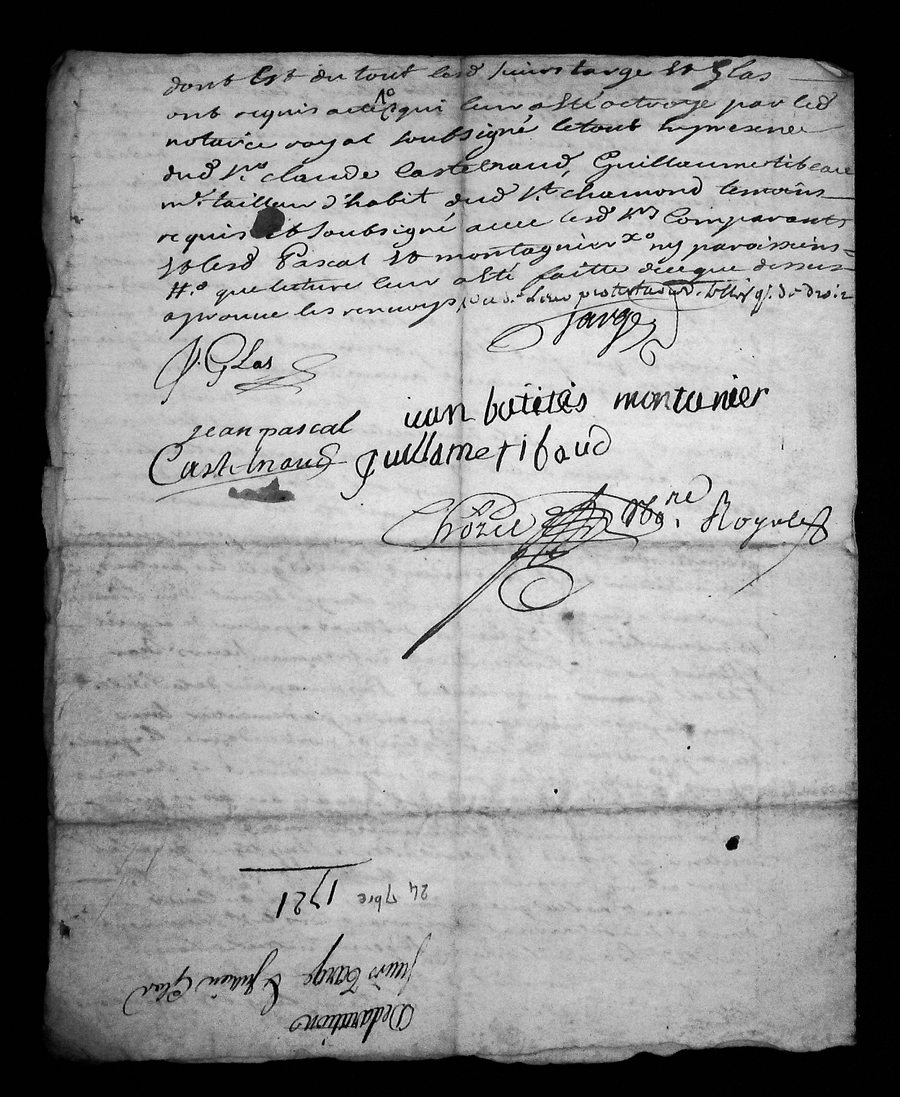 dont Est du tout lesd sieurs targe Et Glas
ont requis acte qui leur a Eté octroyé par led
notaire royal soubsigné le tout En presence
dud Sr claude Castelnaud, Guillaume tibaud
mre tailleur d'habit dud St chamond temoins
requis Et soubsigné avec lesd Srs Comparants
Et lesd Pascal Et montagnier ny paroissiens
que lecture leur a Eté faitte de ce que dessus
aprouve les renvoys
targe
J. Glas
jean pascal
iean batites montanier
Castelnaud
guillame tibaud
Chorel Nore Royal
24 7bre
1721
Declaration
sieurs Targe & Julien Glas